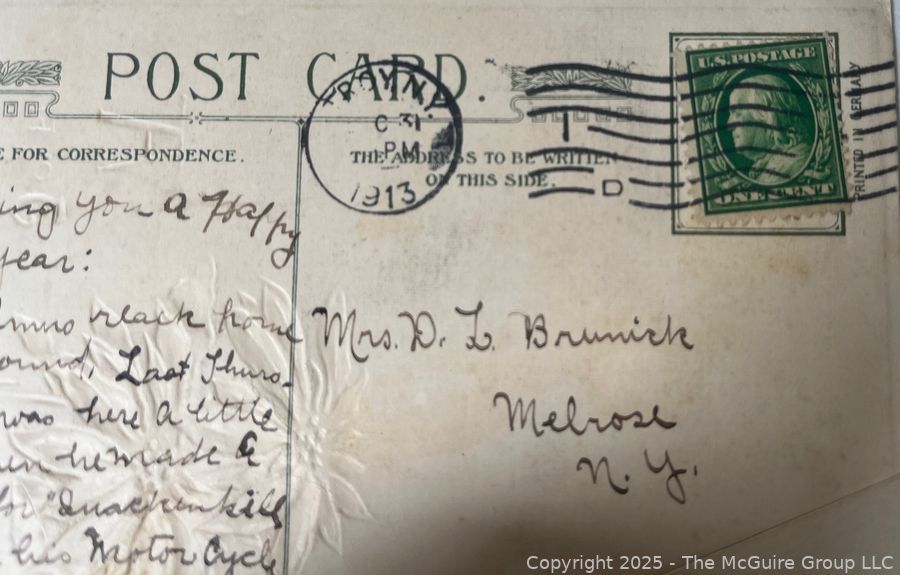 POST CARD.
TROY, N.Y.
C 31
PM
1913
D
U.S. POSTAGE
ONE CENT
PRINTED IN GERMANY
E FOR CORRESPONDENCE.
THE ADDRESS TO BE WRITTEN
ON THIS SIDE.
ing you a Happy
year:
reach home
ound, Last Thurs-
was here a little
en he made a
for "Quackenkill
his Motor Cycle
Mrs. D. L. Brunick
Melrose
N. Y.
Copyright 2025 - The McGuire Group LLC